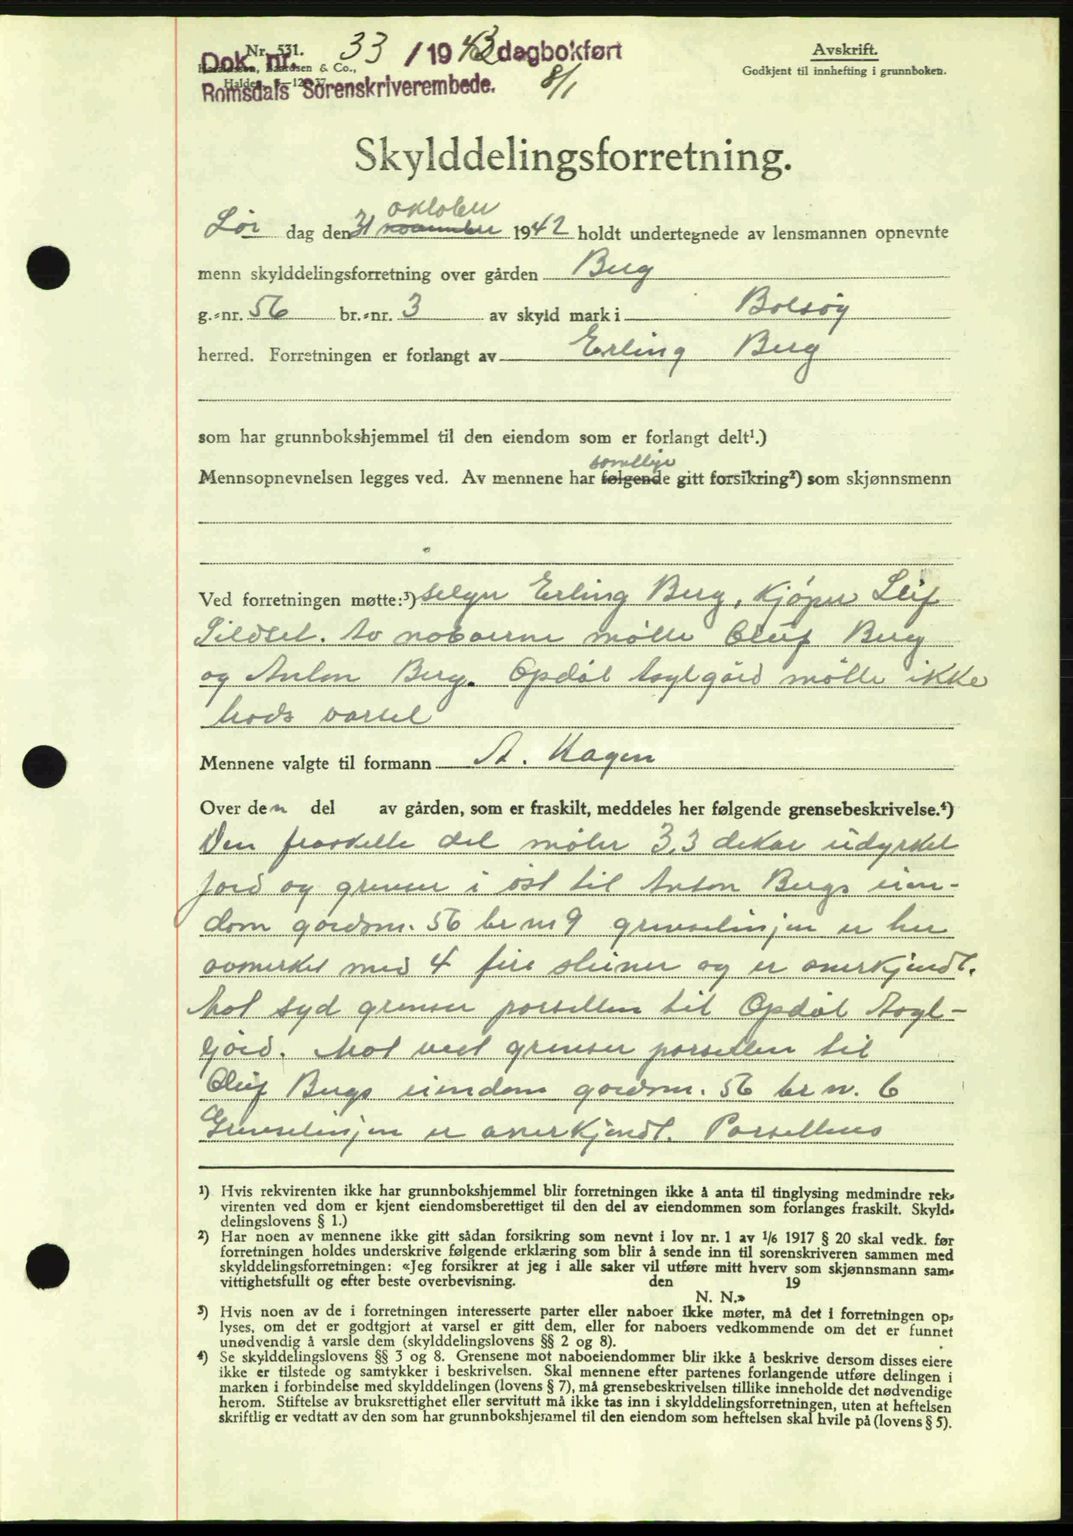 Nr. 531.
Dok. nr. 33 / 1943 dagbokført
Romsdals Sorenskriverembede. 8/1
Avskrift.
Godkjent til innhefting i grunnboken.
Skylddelingsforretning.
oktober
Lør dag den 31 november 1942 holdt undertegnede av lensmannen opnevnte
menn skylddelingsforretning over gården Berg
g.-nr. 56 br.-nr. 3 av skyld mark i Bolsøy
herred. Forretningen er forlangt av Erling Berg
som har grunnbokshjemmel til den eiendom som er forlangt delt¹.)
samtlige
Mennsopnevnelsen legges ved. Av mennene har følgende gitt forsikring²) som skjønnsmenn
Ved forretningen møtte:³) Selger Erling Berg, Kjøper Leif
Sildset. Av naboerne møtte Oluf Berg
og Anton Berg. Opdøl Asylgård møtte ikke
trods varsel
Mennene valgte til formann A. Hagen
Over den del av gården, som er fraskilt, meddeles her følgende grensebeskrivelse.⁴)
Den fraskilte del måler 3,3 dekar udyrket
jord og grenser i øst til Anton Bergs eien-
dom gårdsnr. 56 br nr 9 grenselinjen er her
avmerket med 4 fire steiner og er anerkjendt.
Mot syd grenser parsellen til Opdøl Asyl-
gård. Mot vest grenser parsellen til
Oluf Bergs eiendom gårdsnr. 56 br n. 6
Grenselinjen er anerkjendt. Parsellens
¹) Hvis rekvirenten ikke har grunnbokshjemmel blir forretningen ikke å anta til tinglysing medmindre rek-
virenten ved dom er kjent eiendomsberettiget til den del av eiendommen som forlanges fraskilt. Skyld-
delingslovens § 1.)
²) Har noen av mennene ikke gitt sådan forsikring som nevnt i lov nr. 1 av 1/6 1917 § 20 skal vedk. før
forretningen holdes underskrive følgende erklæring som blir å sende inn til sorenskriveren sammen med
skylddelingsforretningen: «Jeg forsikrer at jeg i alle saker vil utføre mitt hverv som skjønnsmann sam-
vittighetsfullt og efter beste overbevisning. den 19
N. N.»
³) Hvis noen av de i forretningen interesserte parter eller naboer ikke møter, må det i forretningen op-
lyses, om det er godtgjort at varsel er gitt dem, eller for naboers vedkommende om det er funnet
unødvendig å varsle dem (skylddelingslovens §§ 2 og 8).
⁴) Se skylddelingslovens §§ 3 og 8. Grensene mot naboeiendommer blir ikke å beskrive dersom disses eiere
ikke er tilstede og samtykker i beskrivelsen. Skal mennene efter partenes forlangende utføre delingen i
marken i forbindelse med skylddelingen (lovens § 7), må grensebeskrivelsen tillike inneholde det nødvendige
herom. Stiftelse av bruksrettighet eller servitutt må ikke tas inn i skylddelingsforretningen, uten at heftelsen
skriftlig er vedtatt av den som har grunnbokshjemmel til den eiendom som heftelsen skal hvile på (lovens § 5).